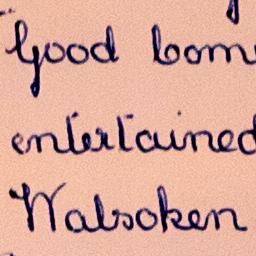 Good bom
entertained
Walsoken